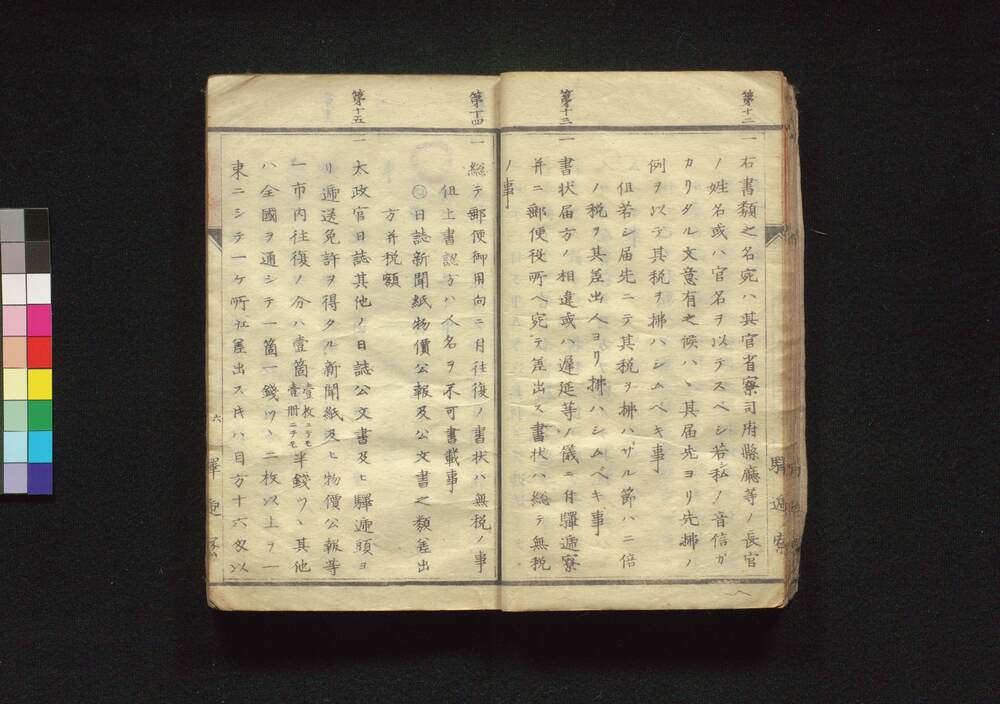 第十二
一右書類之名宛ハ其官省寮司府縣廳等ノ長官
ノ姓名或ハ官名ヲ以テスベシ若シ私ノ音信ガ
カリタル文意有之候ハヽ其届先ヨリ先拂ノ
例ヲ以テ其税ヲ拂ハシムベキ事
但若シ届先ニテ其税ヲ拂ハザル節ハ二倍
ノ税ヲ其差出人ヨリ拂ハシムベキ事
第十三
一書状届方ノ相違或ハ遅延等ノ儀ニ付驛逓寮
并ニ郵便役所ヘ宛テ差出ス書状ハ総テ無税
ノ事
第十四
一総テ郵便御用向ニ付往復ノ書状ハ無税ノ事
但上書認方ハ人名ヲ不可書載事
◯日誌新聞紙物價公報及公文書之類差出
方并税額
第十五
一太政官日誌其他ノ日誌公文書及ヒ驛逓頭ヨ
リ逓送免許ヲ得タル新聞紙及ヒ物價公報等
一市内往復ノ分ハ壹箇壹枚ニテモ壹冊ニテモ半錢ツヽ其他
ハ全國ヲ通シテ一箇一錢ツヽ二枚以上ヲ一
束ニシテ一ケ所江差出ス片ハ目方十六匁以
六
驛逓寮